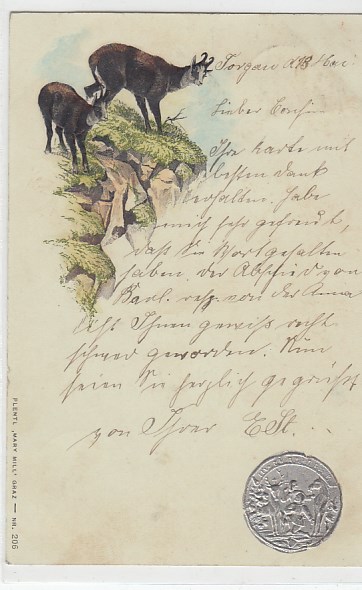 Torgau d. 18 Mai
Lieber Cousin
Ihre Karte mit
besten Dank
erhalten. Habe
mich sehr gefreut,
daß Sie Wort gehalten
haben. der Abschied von
Karl. resp. von der Anna
ist Ihnen gewiß recht
schwer geworden. Nun
seien Sie herzlich gegrüßt
von Ihrer E St. . .
PLENTL „MARY MILL" GRAZ — NR. 206